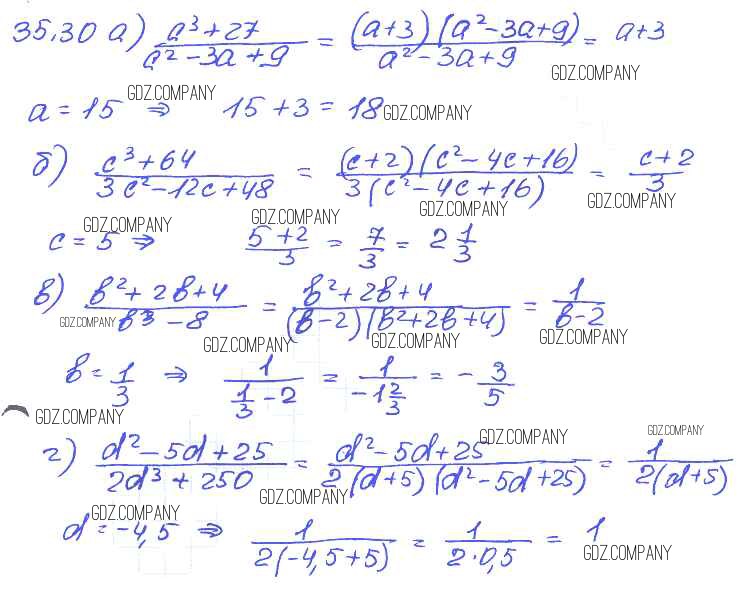 35.30 а) (a³+27)/(a²-3a+9) = ((a+3)(a²-3a+9))/(a²-3a+9) = a+3
GDZ.COMPANY
a = 15 GDZ.COMPANY ⇒ 15+3 = 18 GDZ.COMPANY
б) (c³+64)/(3c²-12c+48) = ((c+2)(c²-4c+16))/(3(c²-4c+16)) = (c+2)/3
GDZ.COMPANY GDZ.COMPANY GDZ.COMPANY GDZ.COMPANY
c = 5 ⇒ (5+2)/3 = 7/3 = 2 1/3
в) (b²+2b+4)/(b³-8) = (b²+2b+4)/((b-2)(b²+2b+4)) = 1/(b-2)
GDZ.COMPANY GDZ.COMPANY GDZ.COMPANY GDZ.COMPANY
b = 1/3 ⇒ 1/(1/3 - 2) = 1/(-1 2/3) = - 3/5
GDZ.COMPANY
г) (d²-5d+25)/(2d³+250) = (d²-5d+25)/(2(d+5)(d²-5d+25)) = 1/(2(d+5))
GDZ.COMPANY GDZ.COMPANY GDZ.COMPANY GDZ.COMPANY
d = -4,5 ⇒ 1/(2(-4,5+5)) = 1/(2·0,5) = 1
GDZ.COMPANY